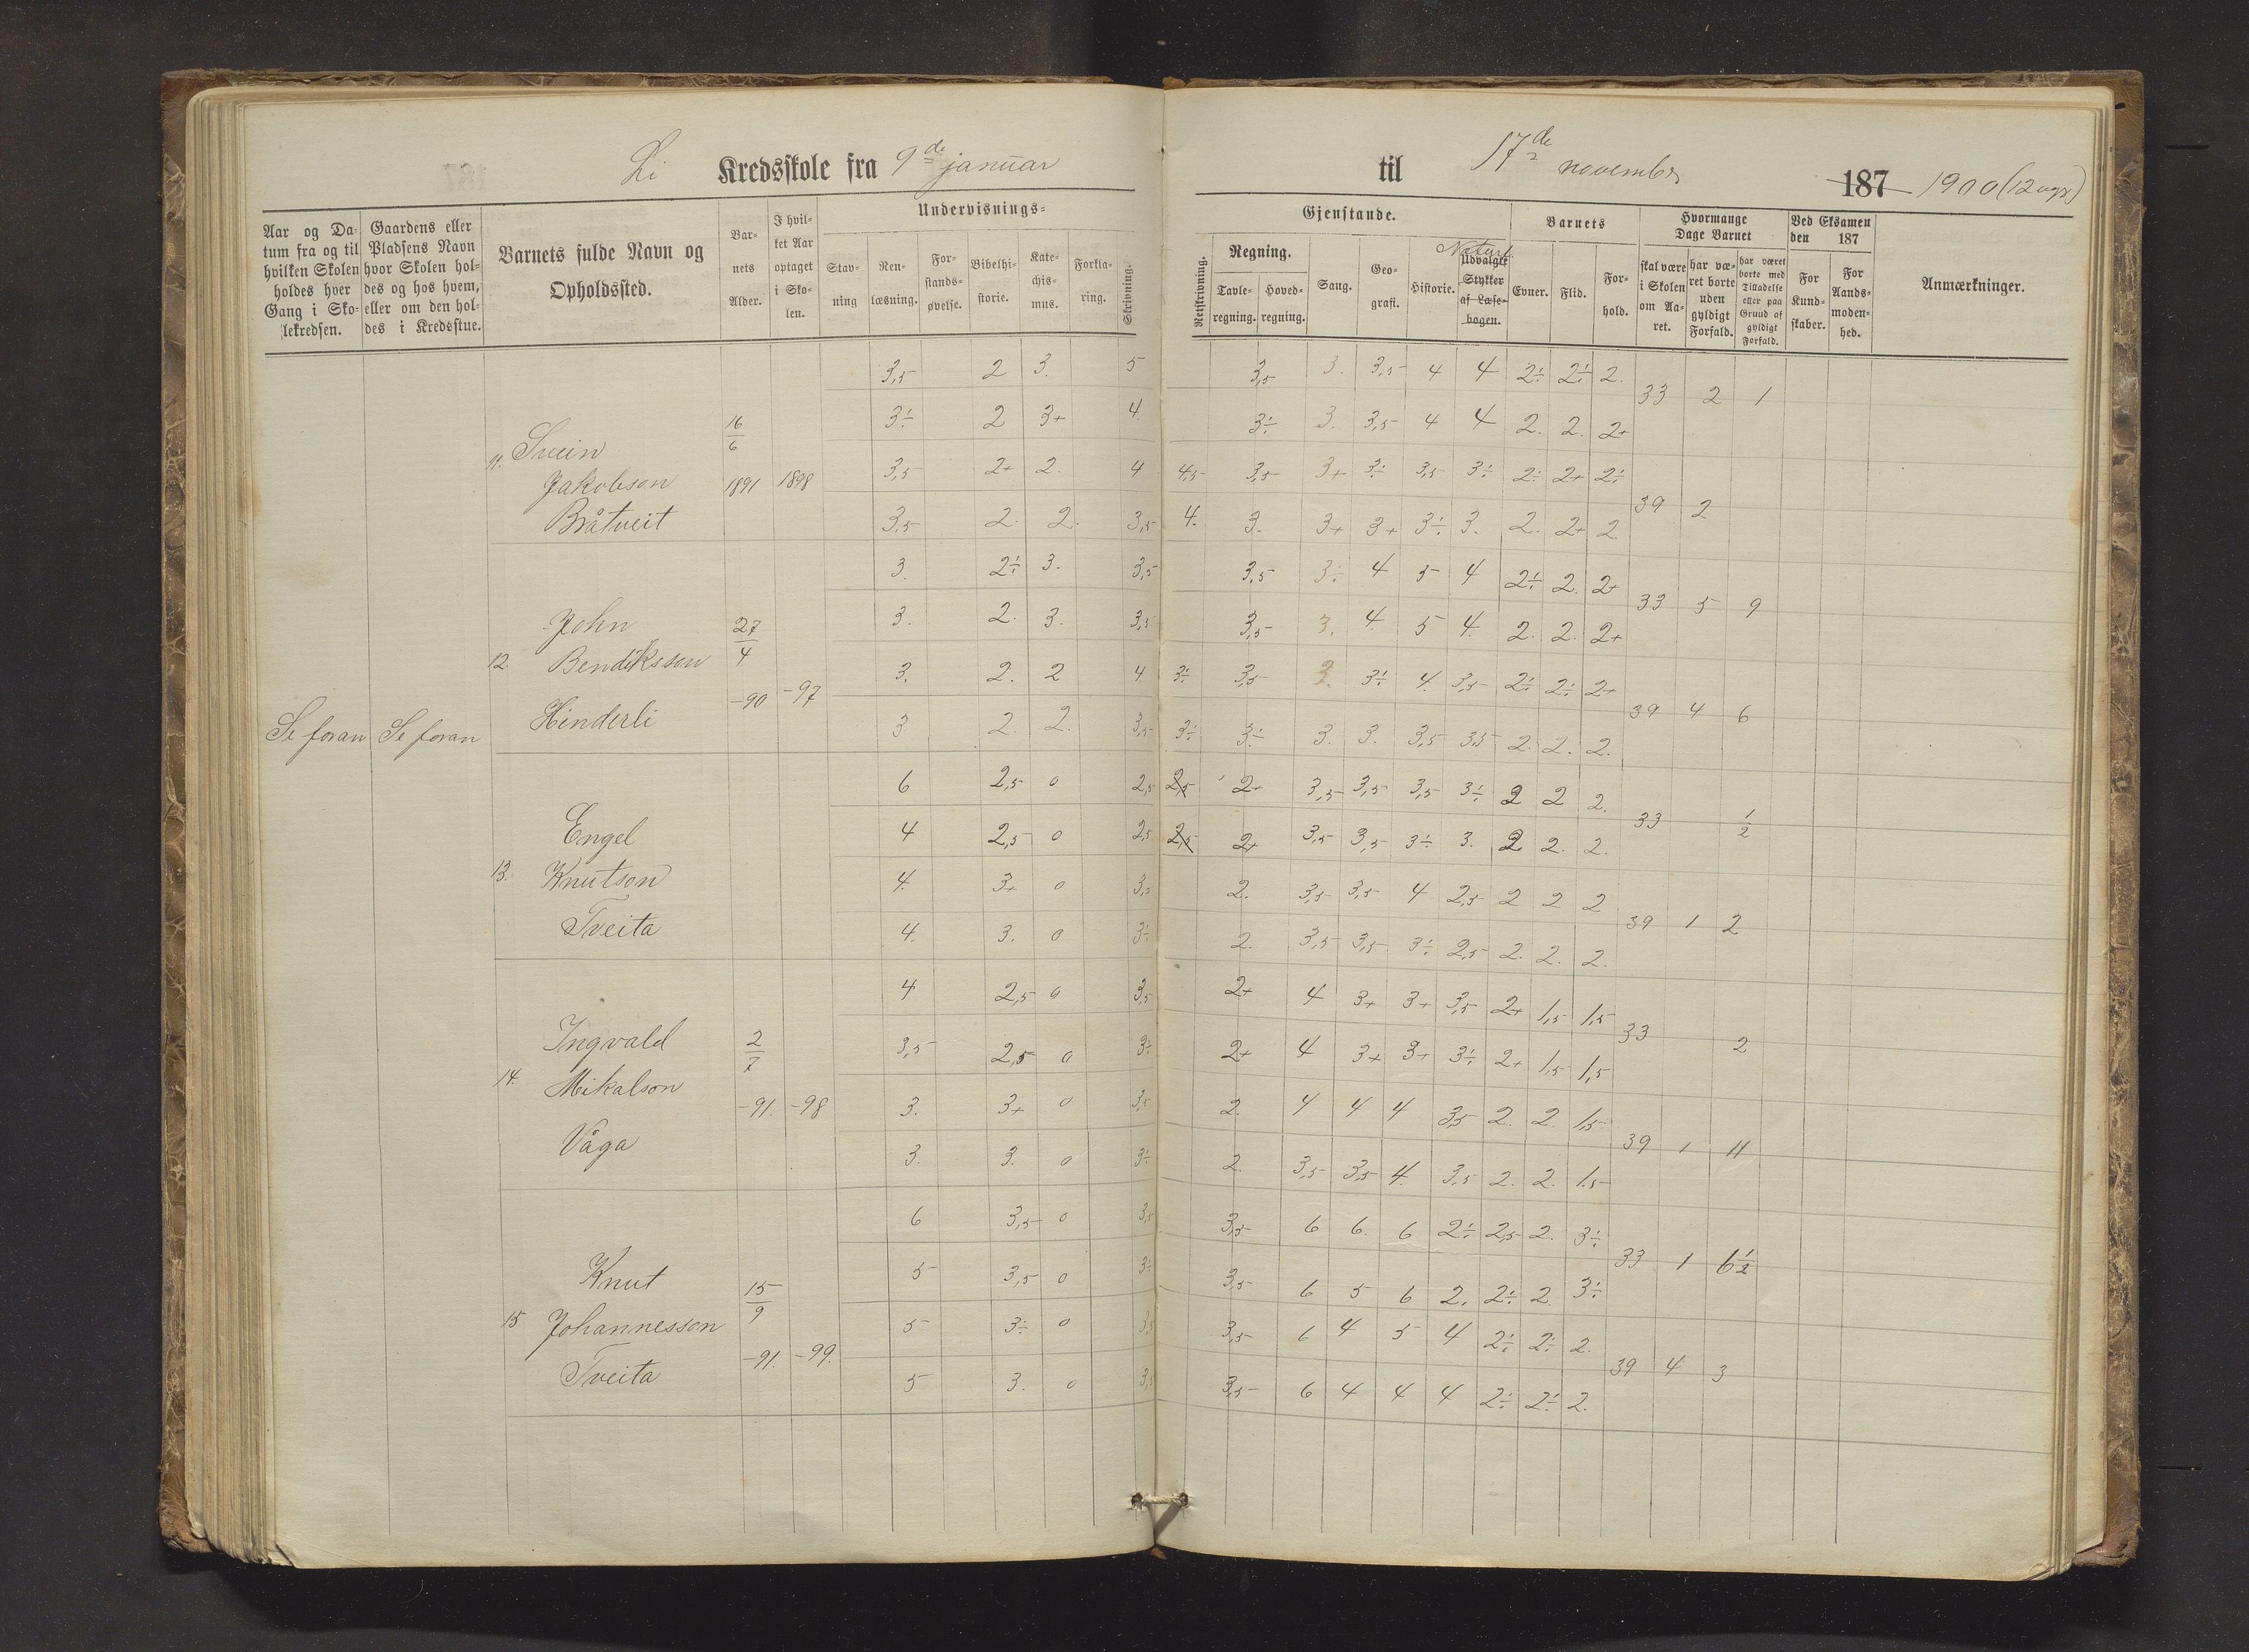 Li Kredsskole fra 9de januar til 17de november 187 1900 (12 uger)
Aar og Datum fra og til hvilken Skolen holdes hver Gang i Skolekredsen.
Gaardens eller Pladsens Navn hvor Skolen holdes og hos hvem, eller om den holdes i Kredsstue.
Barnets fulde Navn og Opholdssted.
Barnets Alder.
I hvilket Aar optaget i Skolen.
Undervisnings=
Stavning
Renlæsning.
Forstandsøvelse.
Bibelhistorie.
Katechismus.
Forklaring.
Skrivning.
Gjenstande.
Retskrivning.
Regning.
Tavleregning.
Hovedregning.
Sang.
Geografi.
Historie.
Naturf.
Udvalgte Stykker af Læsebogen.
Barnets
Evner.
Flid.
Forhold.
Hvormange Dage Barnet
skal være i Skolen om Aaret.
har været borte uden gyldigt Forfald.
har været borte med Tilladelse eller paa Grund af gyldigt Forfald.
Ved Eksamen den 187
For Kundskaber.
For Aandsmodenhed.
Anmærkninger.
Se foran Se foran
11. Svein Jakobson Bråtveit 16/6 1891 1898
3,5 2 3. 5 3,5 3. 3,5 4 4 2÷ 2÷ 2. 33 2 1
3÷ 2 3+ 4. 3÷ 3. 3,5 4 4 2. 2. 2+
3,5 2+ 2. 4 4,5 3,5 3+ 3÷ 3,5 3÷ 2÷ 2+ 2÷ 39 2
3,5 2. 2. 3,5 4. 3. 3+ 3+ 3÷ 3. 2. 2+ 2
12. John Bendiksson Hinderli 27/4 -90 -97
3. 2÷ 3. 3,5 3,5 3÷ 4 5 4 2÷ 2. 2+ 33 5 9
3. 2. 3. 3,5 3,5 3. 4. 5 4. 2. 2. 2+
3. 2. 2 4. 3÷ 3,5 3. 3÷ 4. 3,5 2÷ 2÷ 2+ 39 4 6
3 2. 2. 3,5 3÷ 3÷ 3. 3. 3,5 3,5 2. 2. 2.
13. Engel Knutson Tveita
6 2,5 0 2,5 2,5 2+ 3,5 3,5 3,5 3÷ 2 2 2. 33 1/2
4 2,5 0 2,5 2,5 2+ 3,5 3,5 3÷ 3. 2 2. 2.
4. 3+ 0 3,5 2. 3,5 3,5 4 2,5 2 2 2 39 1 2
4. 3. 0 3÷ 2. 3,5 3,5 3÷ 2,5 2. 2. 2.
14. Ingvald Mikalson Våga 2/7 -91. -98
4 2,5 0 3,5 2+ 4 3+ 3+ 3,5 2+ 1,5 1,5 33 2
3,5 2,5 0 3÷ 2+ 4 3+ 3+ 3÷ 2+ 1,5 1,5
3. 3+ 0 3,5 2. 4 4 4 3,5 2. 2. 1,5 39 1 11
3. 3. 0 3÷ 2. 3,5 3,5 4. 3,5 2. 2. 1.5
15 Knut Johannesson Tveita 15/9 -91. -99.
6 3,5 0 3,5 3,5 6 6. 6 2÷ 2,5 2. 3÷ 33 1 6 1/2
5 3,5 0 3÷ 3,5 6 5 6 2. 2÷ 2. 3÷
5 3÷ 0 3,5 3,5 6 4 5 4 2÷ 2÷ 2. 39 4 3
5 3. 0 3,5 3,5 6 4 4 4 2÷ 2÷ 2.